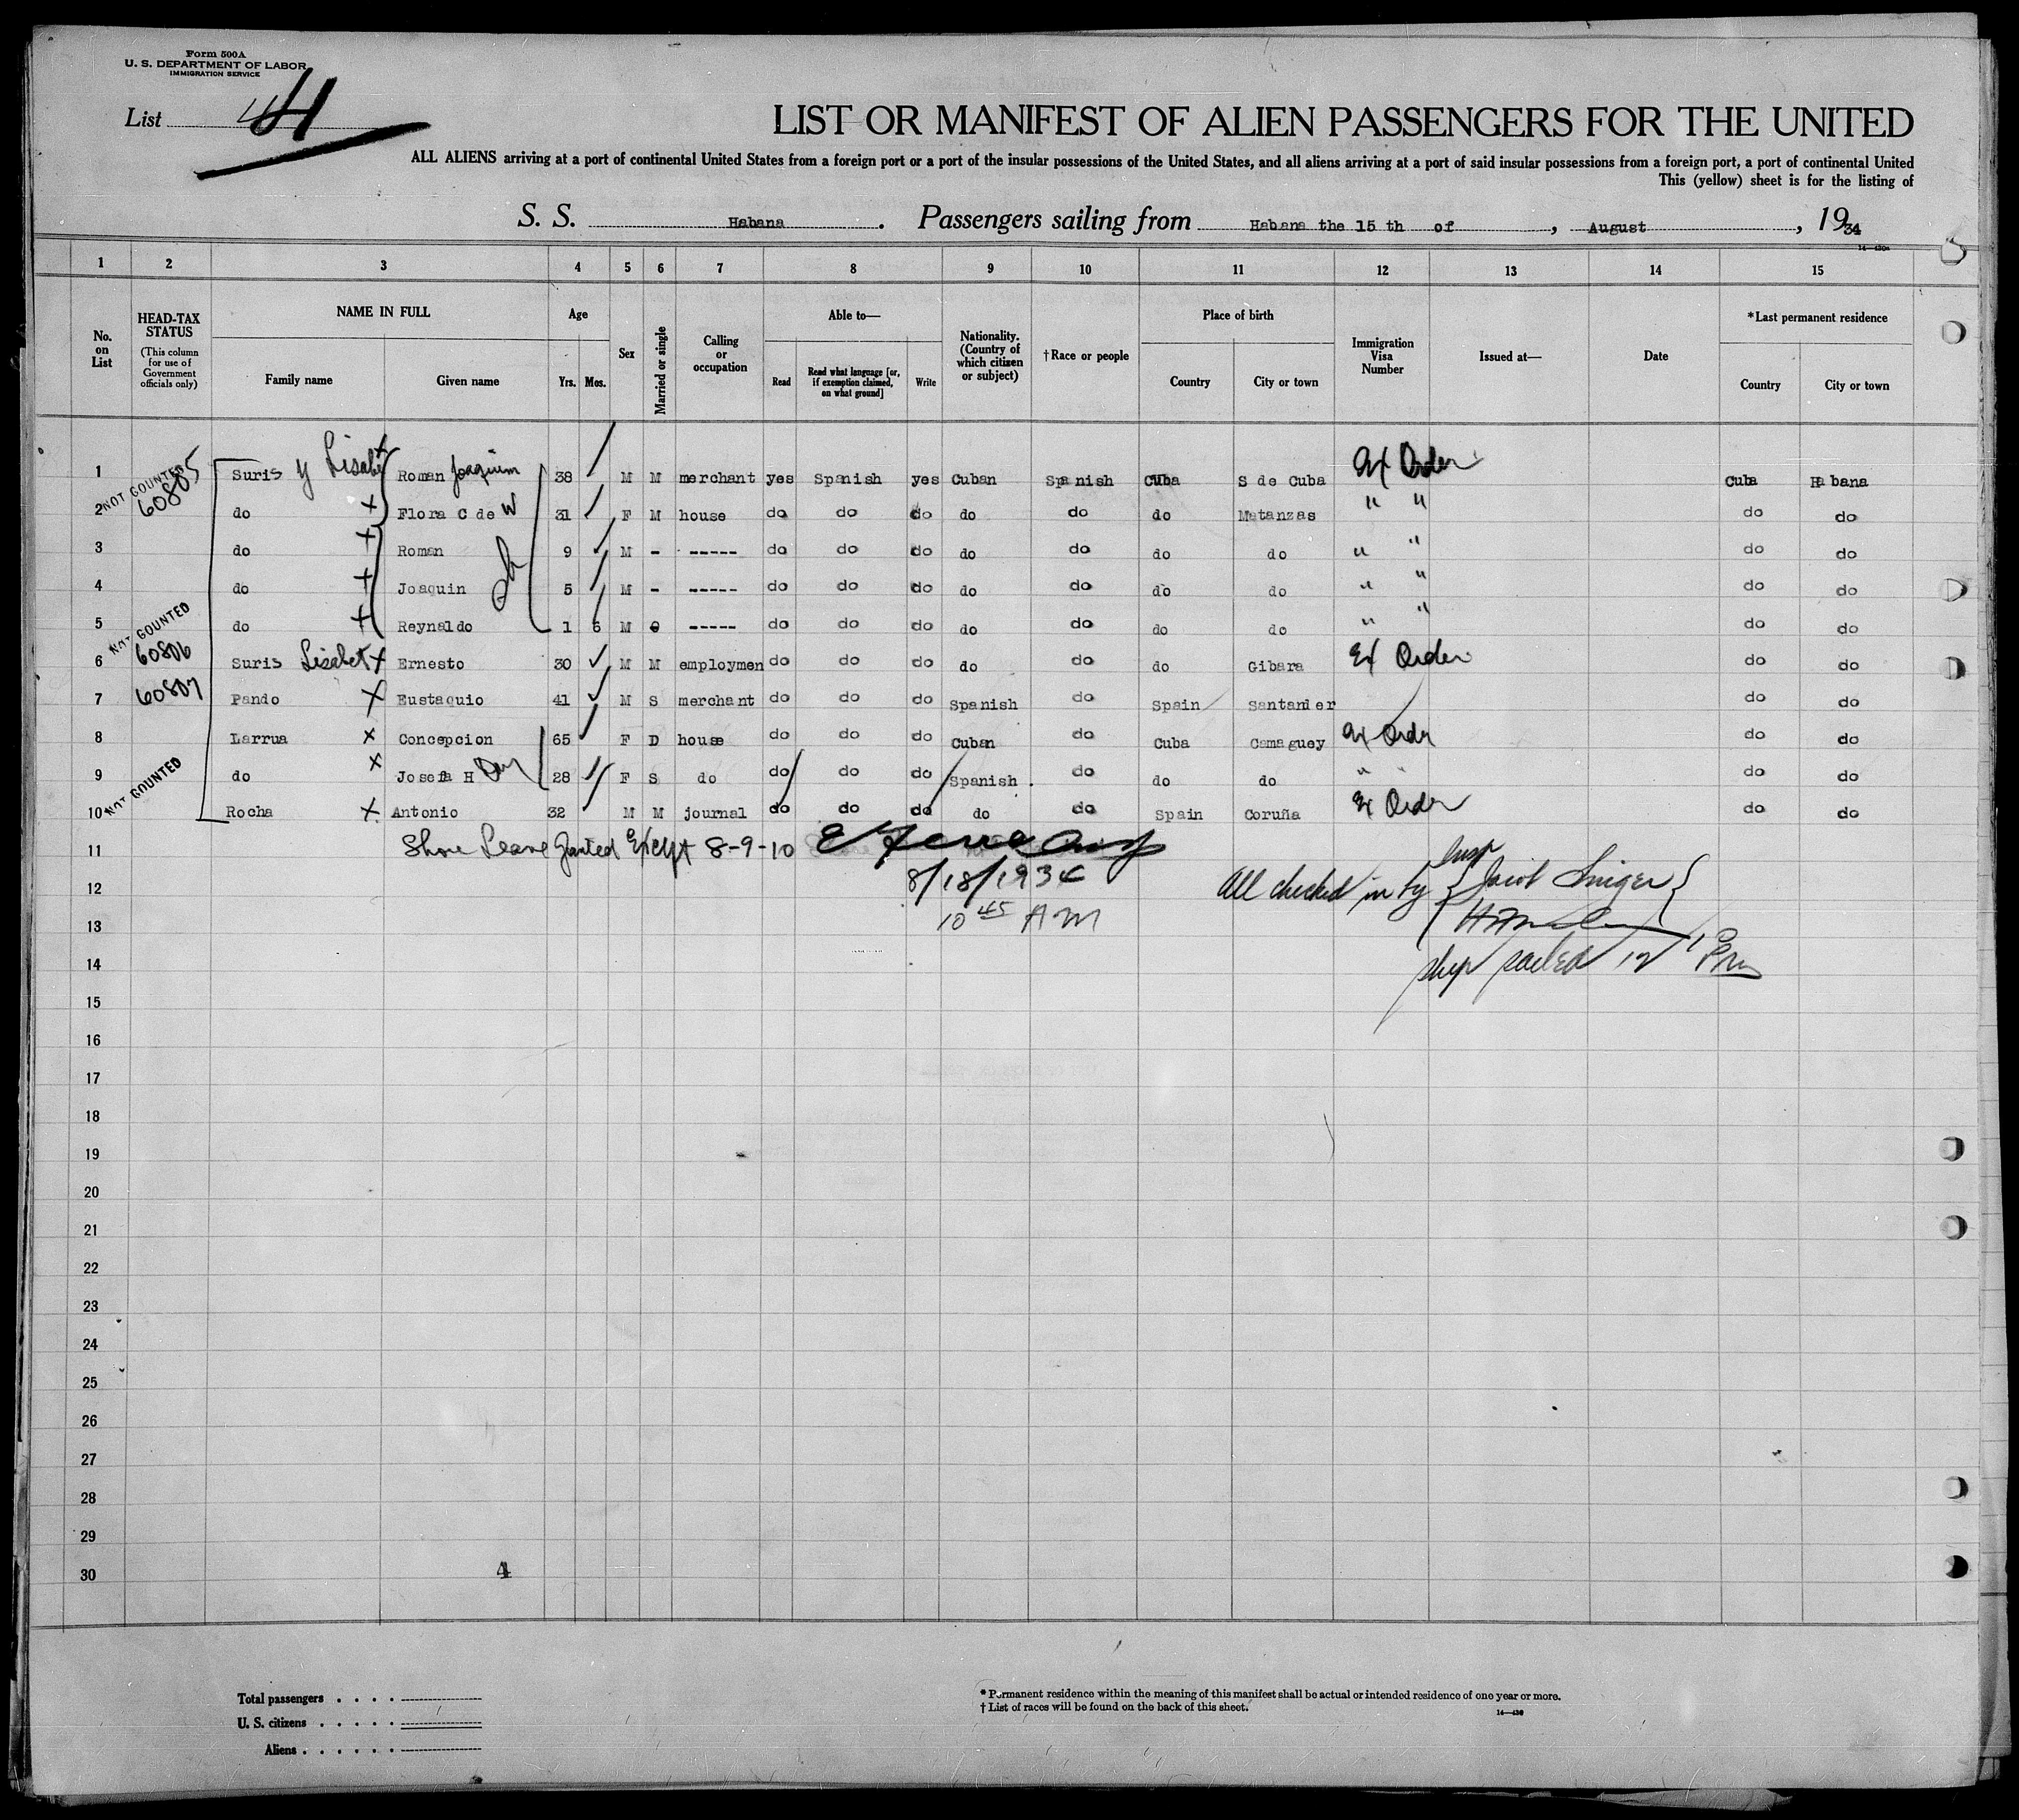 Form 500A
U. S. DEPARTMENT OF LABOR
IMMIGRATION SERVICE
List 4
LIST OR MANIFEST OF ALIEN PASSENGERS FOR THE UNITED
ALL ALIENS arriving at a port of continental United States from a foreign port or a port of the insular possessions of the United States, and all aliens arriving at a port of said insular possessions from a foreign port, a port of continental United
This (yellow) sheet is for the listing of
S. S. Habana. Passengers sailing from Habana the 15 th of, August, 1934
1 2 3 4 5 6 7 8 9 10 11 12 13 14 15
No. on List
HEAD-TAX STATUS
(This column for use of Government officials only)
NAME IN FULL
Family name Given name
Age
Yrs. Mos.
Sex
Married or single
Calling or occupation
Able to—
Read
Read what language [or, if exemption claimed, on what ground]
Write
Nationality. (Country of which citizen or subject)
†Race or people
Place of birth
Country City or town
Immigration Visa Number
Issued at—
Date
*Last permanent residence
Country City or town
1 NOT COUNTED 60805 Suris y Lisabet Roman Joaquim 38 M M merchant yes Spanish yes Cuban Spanish Cuba S de Cuba Ex Order Cuba Habana
2 do Flora C de W 31 F M house do do do do do do Matanzas " " do do
3 do Roman 9 M - ----- do do do do do do do " " do do
4 do Joaquin 5 M - ----- do do do do do do do " " do do
5 do Reynaldo 1 6 M ----- do do do do do do do " " do do
6 NOT COUNTED 60806 Suris Lisabet Ernesto 30 M M employmen do do do do do do Gibara Ex Order do do
7 60807 Pando Eustaquio 41 M S merchant do do do Spanish do Spain Santander do do
8 Larrua Concepcion 65 F D house do do do Cuban do Cuba Camaguey Ex Order do do
9 do Josefa H 28 F S do do do do Spanish . do do do " " do do
10 NOT COUNTED Rocha Antonio 32 M M journal do do do do do Spain Coruña Ex Order do do
11 Shore Leave Granted Except 8-9-10
12 8/18/1934 All checked in by Insp Jacob
13 10 45 AM
14 ship sailed 12
15
16
17
18
19
20
21
22
23
24
25
26
27
28
29
30 4
Total passengers . . . .
U. S. citizens . . . . .
Aliens . . . . . .
* Permanent residence within the meaning of this manifest shall be actual or intended residence of one year or more.
† List of races will be found on the back of this sheet.
14—430